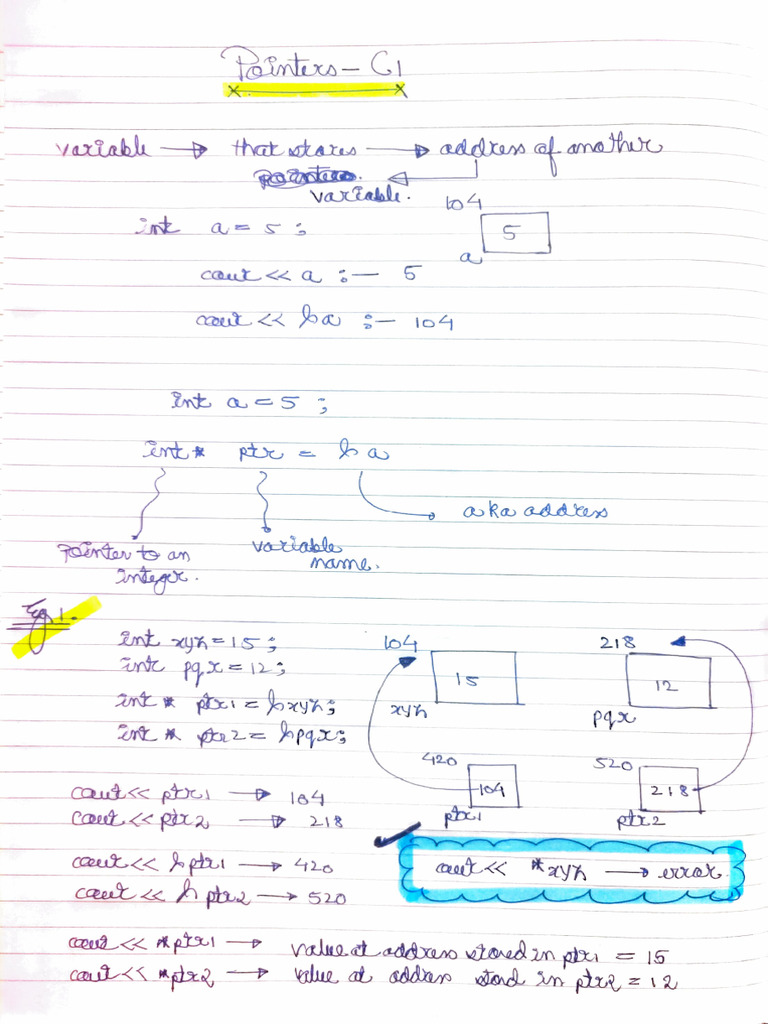 Pointers - C1
variable → that stores → address of another
variable.
104
int a = 5 ;
5
a
cout << a :- 5
cout << &a :- 104
int a = 5 ;
int* ptr = &a
aka address
Pointer to an integer.
variable name.
Eg 1.
int xyz = 15 ;
int pqr = 12 ;
int * ptr1 = &xyz ;
int * ptr2 = &pqr ;
104
15
xyz
218
12
pqr
420
104
ptr1
520
218
ptr2
cout << ptr1 → 104
cout << ptr2 → 218
cout << &ptr1 → 420
cout << &ptr2 → 520
cout << *xyz → error.
cout << *ptr1 → value at address stored in ptr1 = 15
cout << *ptr2 → value at address stord in ptr2 = 12